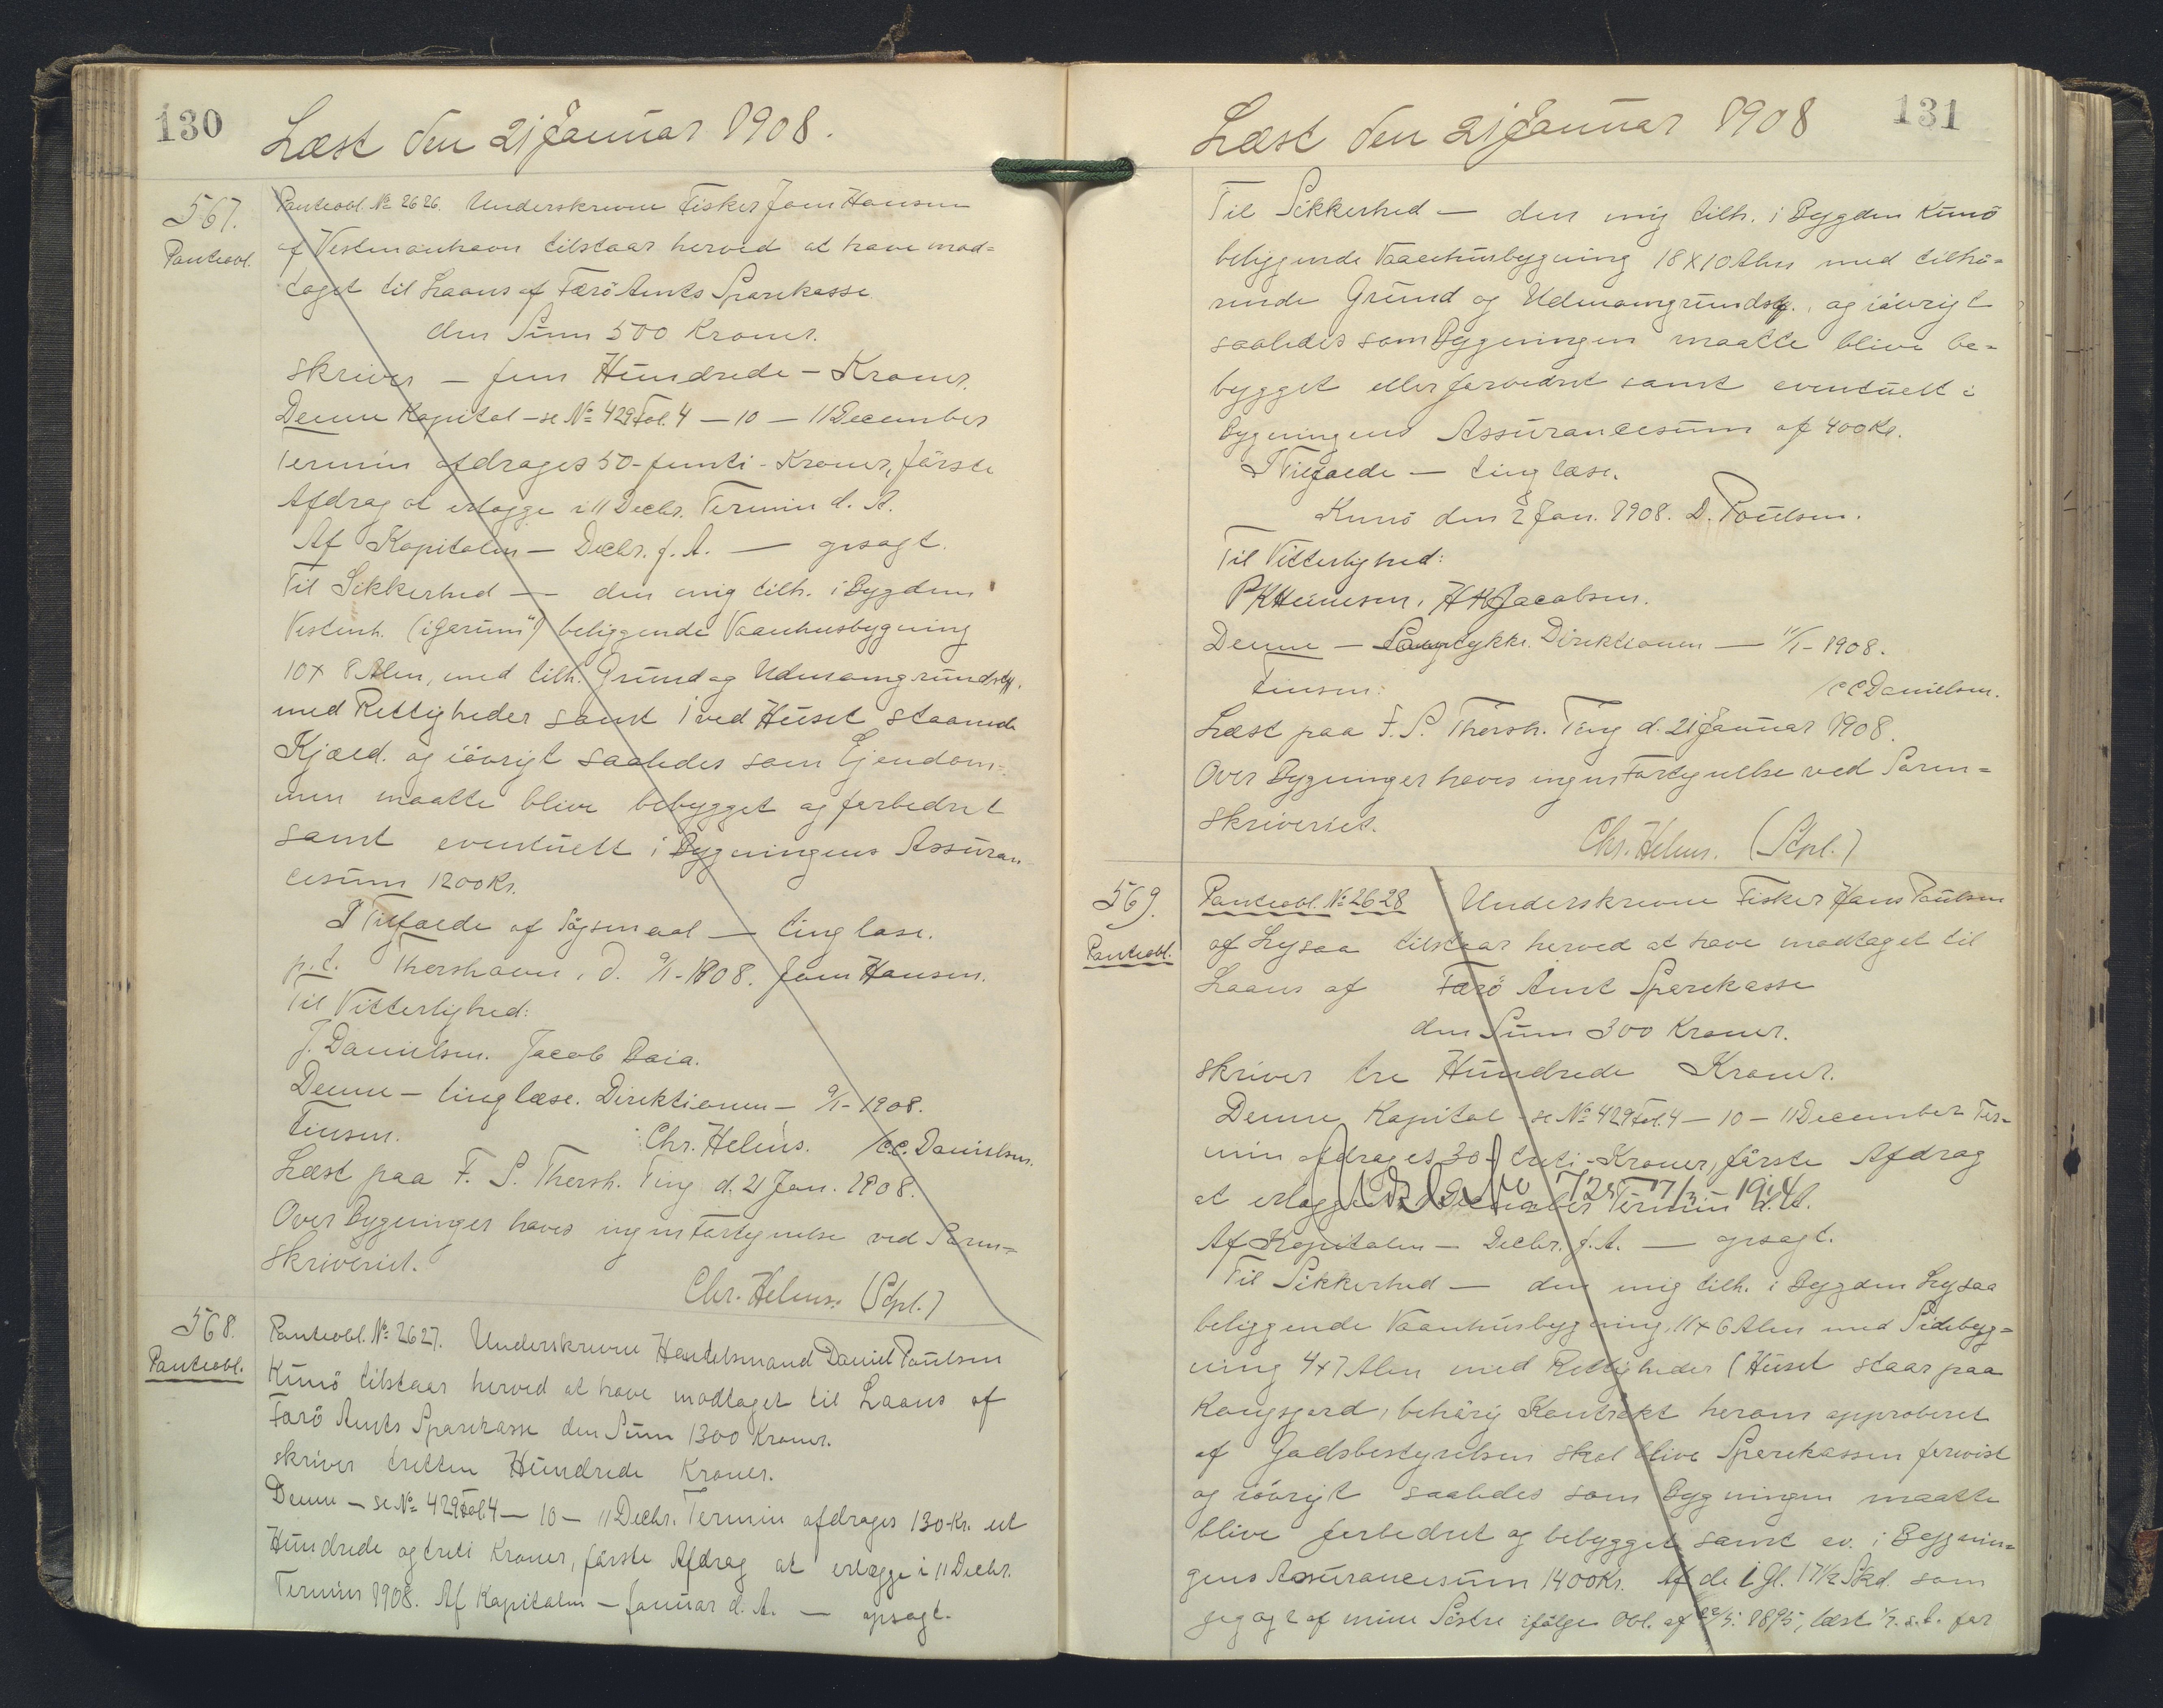 130
Læst den 21 Januar 1908.
567.
Panteobl.
Panteobl. № 2626. Underskrevne Fisker Joen Hansen
af Vestmanhavn tilstaar herved at have mod=
taget til Laans af Færö Amts Sparekasse
den Sum 500 Kroner.
skriver — fem Hundrede — Kroner.
Denne Kapital — se № 429 Fol. 4 — 10 — 11 December
Termin afdrages 50 - femti - Kroner, förste
Afdrag at erlægge i 11 Decbr. Termin d. A.
Af Kapitalen — Decbr. f. A. — opsagt.
Til Sikkerhed — den mig tilh. i Bygden
Vestmh. ("i Gerum") beliggende Vaanhusbygning
10 x 8 Alen, med tilh. Grund og Udmarngrundsty.
med Rettigheder samt 1 ved Huset staaende
Kjæld. og iövrigt saaledes som Ejendom=
men maatte blive bebygget og forbedret
samt eventuelt i Bygningens Assuran
cesum 1200 Kr.
I Tilfælde af Sögsmaal — tinglæse.
p.t. Thorshavn, d. 9/1 - 1908. Joen Hansen.
Til Vitterlighed:
J. Danielsen. Jacob Daia.
Denne — tinglæse. Direktionen — 9/1 - 1908.
Finsen. Chr. Helms. /C.C. Danielsen.
Læst paa F. S. Thorsh. Ting d. 21 Jan. 1908.
Over Bygninger haves ingen Fortegnelse ved Soren=
skriveriet.
Chr. Helms. (Stpl.)
568.
Panteobl.
Panteobl. № 2627. Underskrevne Handelsmand Daniel Poulsen
Kunö tilstaar herved at have modtaget til Laans af
Færö Amts Sparekasse den Sum 1300 Kroner.
skriver tretten Hundrede Kroner.
Denne — se № 429 Fol. 4 — 10 — 11 Decbr. Termin afdrages 130 - Kr. et
Hundrede og treti Kroner, förste Afdrag at erlægge i 11 Decbr.
Termin 1908. Af Kapitalen — Januar d. A. — opsagt.
131
Læst den 21 Januar 1908
Til Sikkerhed — den mig tilh. i Bygden Kunö
beliggende Vaanhusbygning 18 x 10 Alen med tilhö=
rende Grund og Udmarngrundsty., og iövrigt
saaledes som Bygningen maatte blive be=
bygget eller forbedret samt eventuelt i
Bygningens Assurancesum af 400 Kr.
I Tilfælde — tinglæse.
Kunö den 2 Jan. 1908. D. Poulsen.
Til Vitterlighed:
P K Heinesen. H K Jacobsen.
Denne — Samtykke. Direktionen — 11/1 - 1908.
Finsen. /C C Danielsen.
Læst paa F. S. Thorsh. Ting d. 21 Januar 1908.
Over Bygninger haves ingen Fortegnelse ved Soren=
skriveriet.
Chr. Helms. (Stpl.)
569.
Panteobl.
Panteobl. № 2628 Underskrevne Fisker Hans Poulsen
af Lysaa tilstaar herved at have modtaget til
Laans af Færö Amt Sparekasse
den Sum 300 Kroner.
skriver tre Hundrede Kroner.
Denne Kapital — se № 429 Fol. 4 — 10 — 11 December Ter=
min afdrages 30 - treti - Kroner, förste Afdrag
at erlægge i 11 December Termin d. A.
Af Kapitalen — Decbr. f. A. — opsagt.
Til Sikkerhed — den mig tilh. i Bygden Lysaa
beliggende Vaanhusbygning, 11 x 6 Alen med Sidebyg=
ning 4 x 7 Alen med Rettigheder (Huset staar paa
Kongsjord, behörig Kontrakt herom approberet
af Godsbestyrelsen skal blive Sparekassen forevist
og iövrigt saaledes som Bygningen maatte
blive forbedret og bebygget samt ev. i Bygnin=
gens Assurancesum 1400 Kr. Af de 1 Gl. 17 1/2 Skd. som
jeg og 2 af mine Söstre ifölge Obl. af 22/5. 1895, læst 1/7. s. A. for